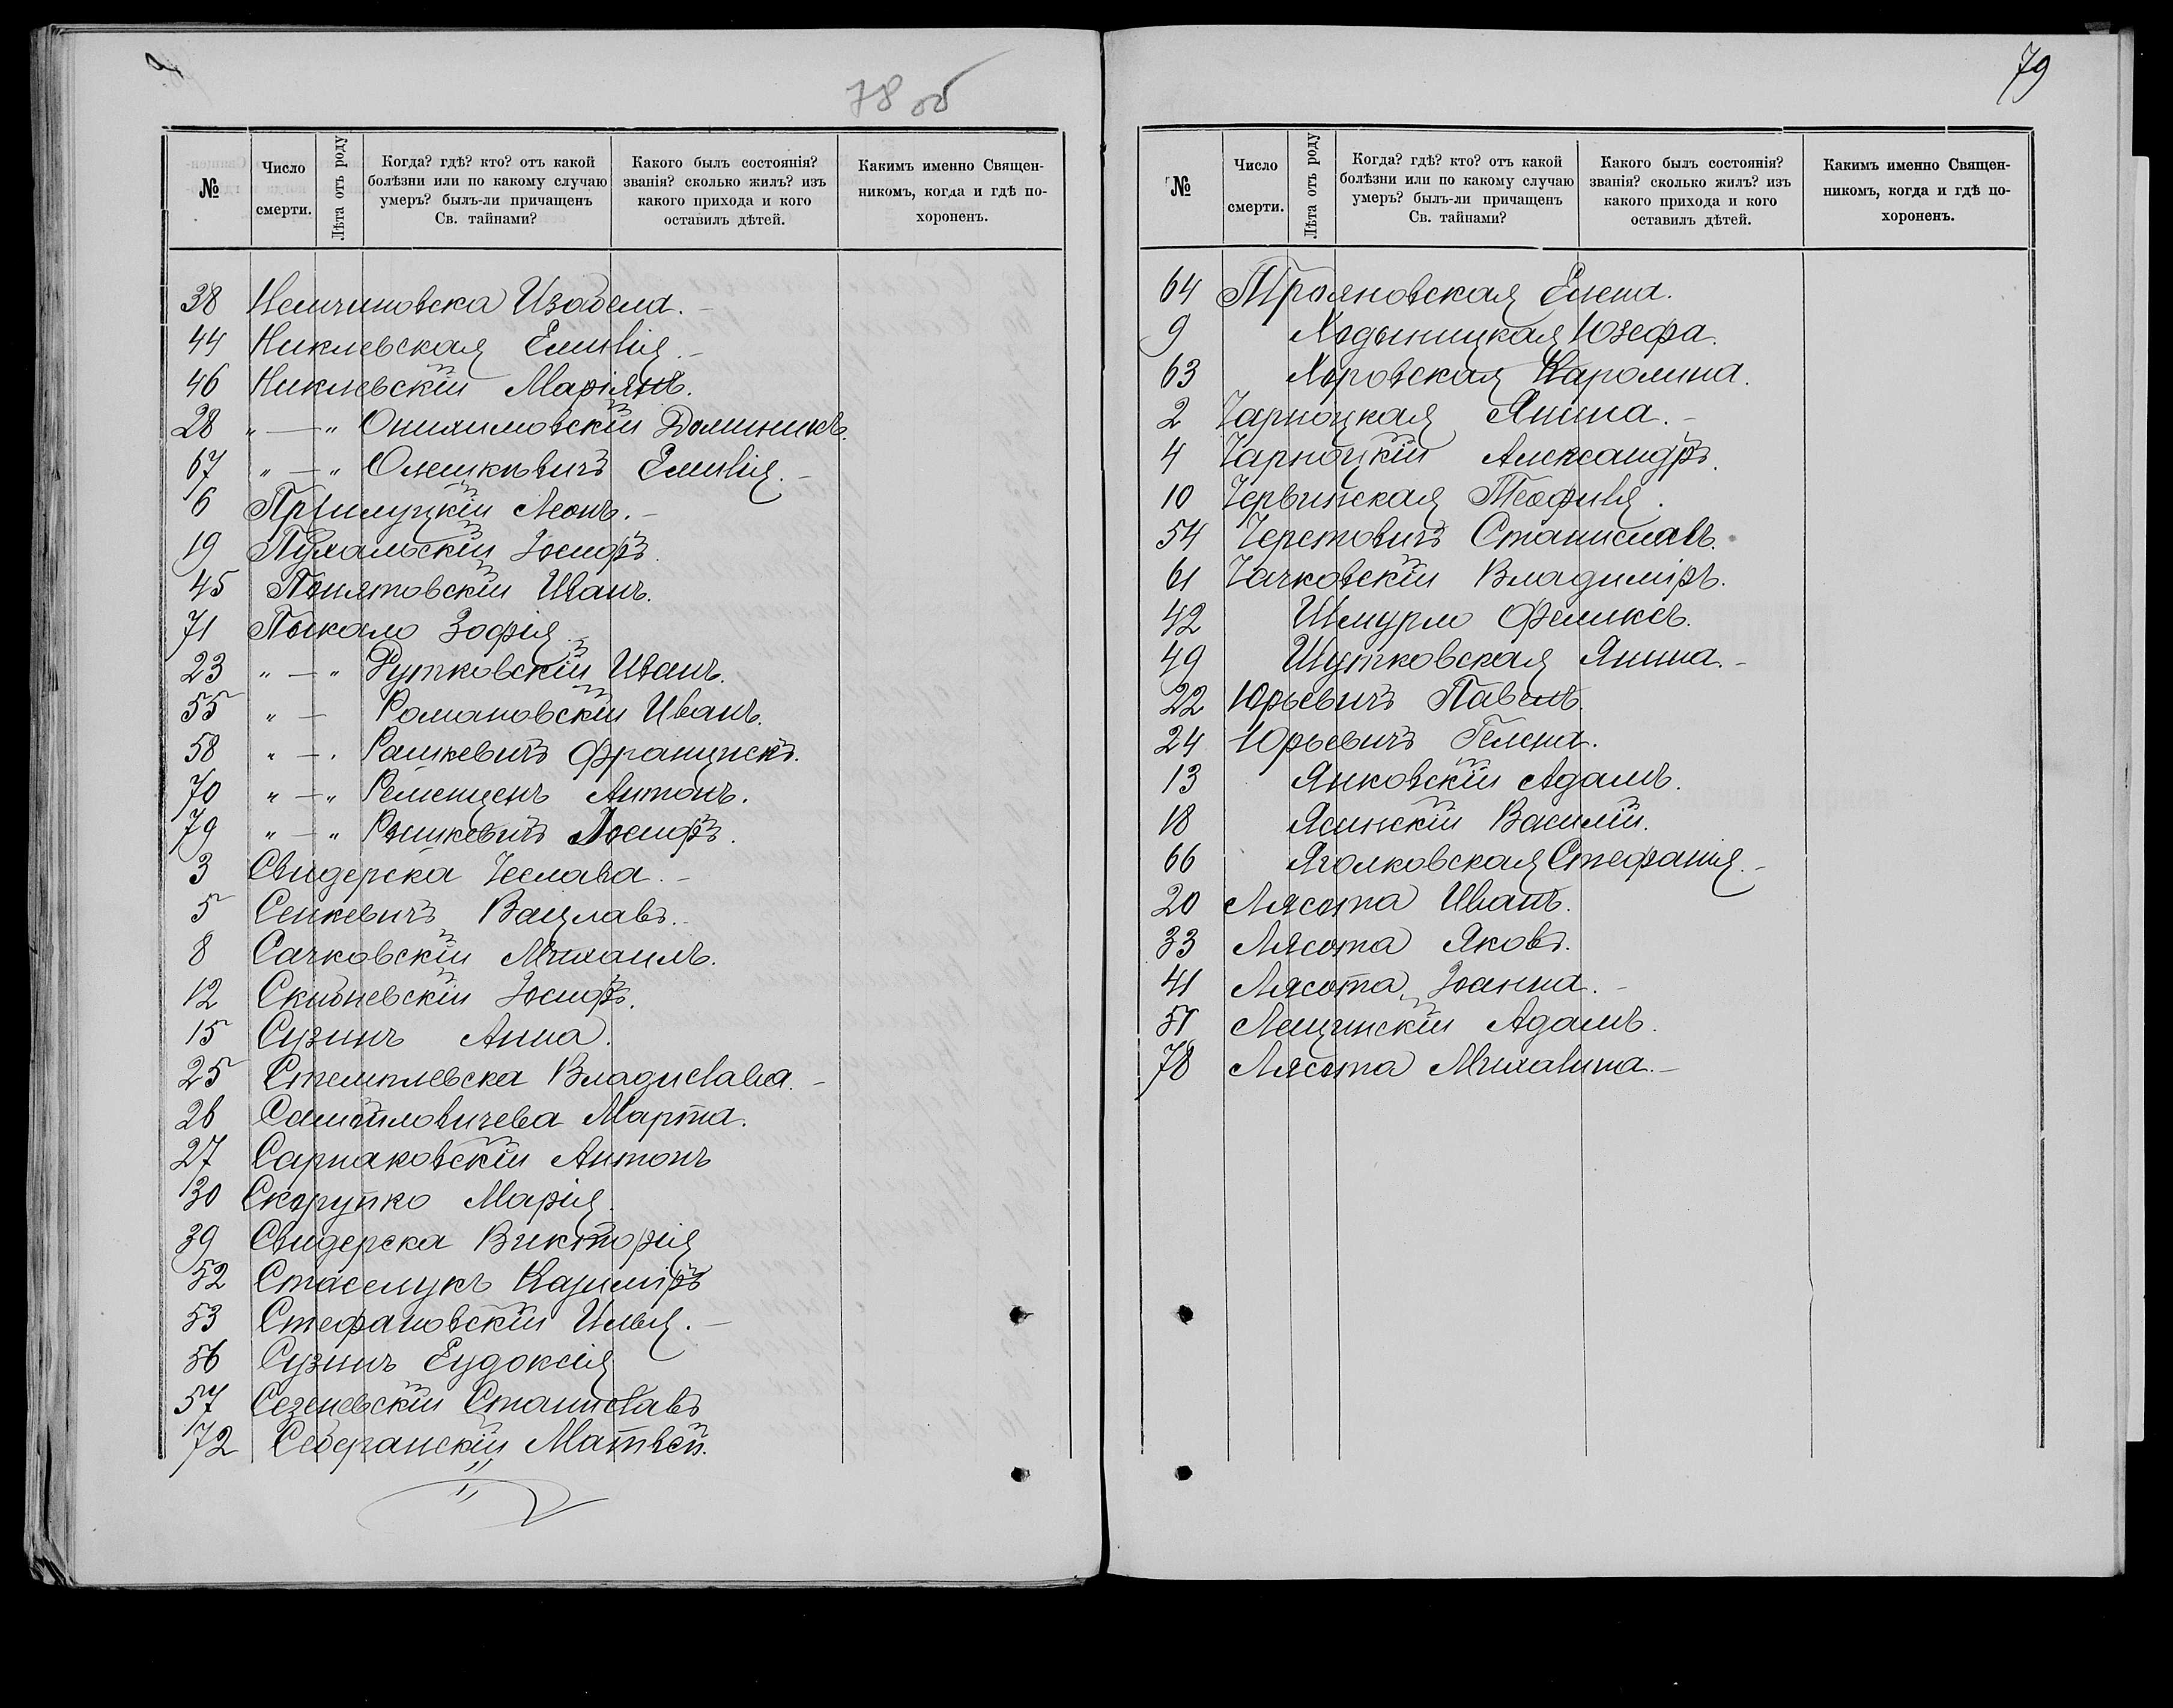 78 об
№ | Число смерти. | Лѣта отъ роду | Когда? гдѣ? кто? отъ какой болѣзни или по какому случаю умеръ? былъ-ли причащенъ Св. тайнами? | Какого былъ состоянія? званія? сколько жилъ? изъ какого прихода и кого оставилъ дѣтей. | Какимъ именно Священникомъ, когда и гдѣ похороненъ.
38 Немчиновска Изабела. -
44 Никлевская Емилія. -
46 Никлевскій Маріянъ.
28 " — " Онихимовскій Доминикъ.
67 " — " Олешкѣвичъ Емилія. -
6 Прилуцкій Леонъ. -
19 Пухальскій Іосифъ.
45 Понятовскій Иванъ.
71 Пыкало Зофія. -
23 " — " Рутковскій Иванъ.
55 " — Романовскій Иванъ.
58 " — " Рашкевичъ Францискъ.
70 " — " Ременценъ Антонъ.
79 " — " Рынкевичъ Іосифъ.
3 Свидерска Чеслава. -
5 Сенкевичъ Вацлавъ. -
8 Сачковскій Михаилъ.
12 Скибневскій Іосифъ.
15 Сузинъ Анна.
25 Стемплевска Владислава. -
26 Самойловичева Марта.
27 Сарнаковскій Антонъ
30 Скорупко Марія.
39 Свидерска Викторія
52 Стаселукъ Казиміръ
53 Стефановскій Илья. -
56 Сузинъ Еудоксія
57 Сезеневскій Станиславъ
72 Себеранскій Матвѣй.
79
№ | Число смерти. | Лѣта отъ роду | Когда? гдѣ? кто? отъ какой болѣзни или по какому случаю умеръ? былъ-ли причащенъ Св. тайнами? | Какого былъ состоянія? званія? сколько жилъ? изъ какого прихода и кого оставилъ дѣтей. | Какимъ именно Священникомъ, когда и гдѣ похороненъ.
64 Трояновская Елена.
9 Ходыницкая Юзефа.
63 Хоровская Каролина.
2 Чарноцкая Янина. -
4 Чарноцкій Александръ.
10 Червинская Теофиля.
54 Черетовичъ Станиславъ.
61 Чачковскій Владиміръ.
42 Шмурло Феликсъ.
49 Шутковская Янина. -
22 Юрьевичъ Павелъ.
24 Юрьевичъ Гелена.
13 Янковскій Адамъ.
18 Ясинскій Василій.
66 Яголковская Стефанія. -
20 Лясота Иванъ.
33 Лясота Яковъ.
41 Лясота Іоанна. -
51 Лещинскій Адамъ.
78 Лясота Михалина. -